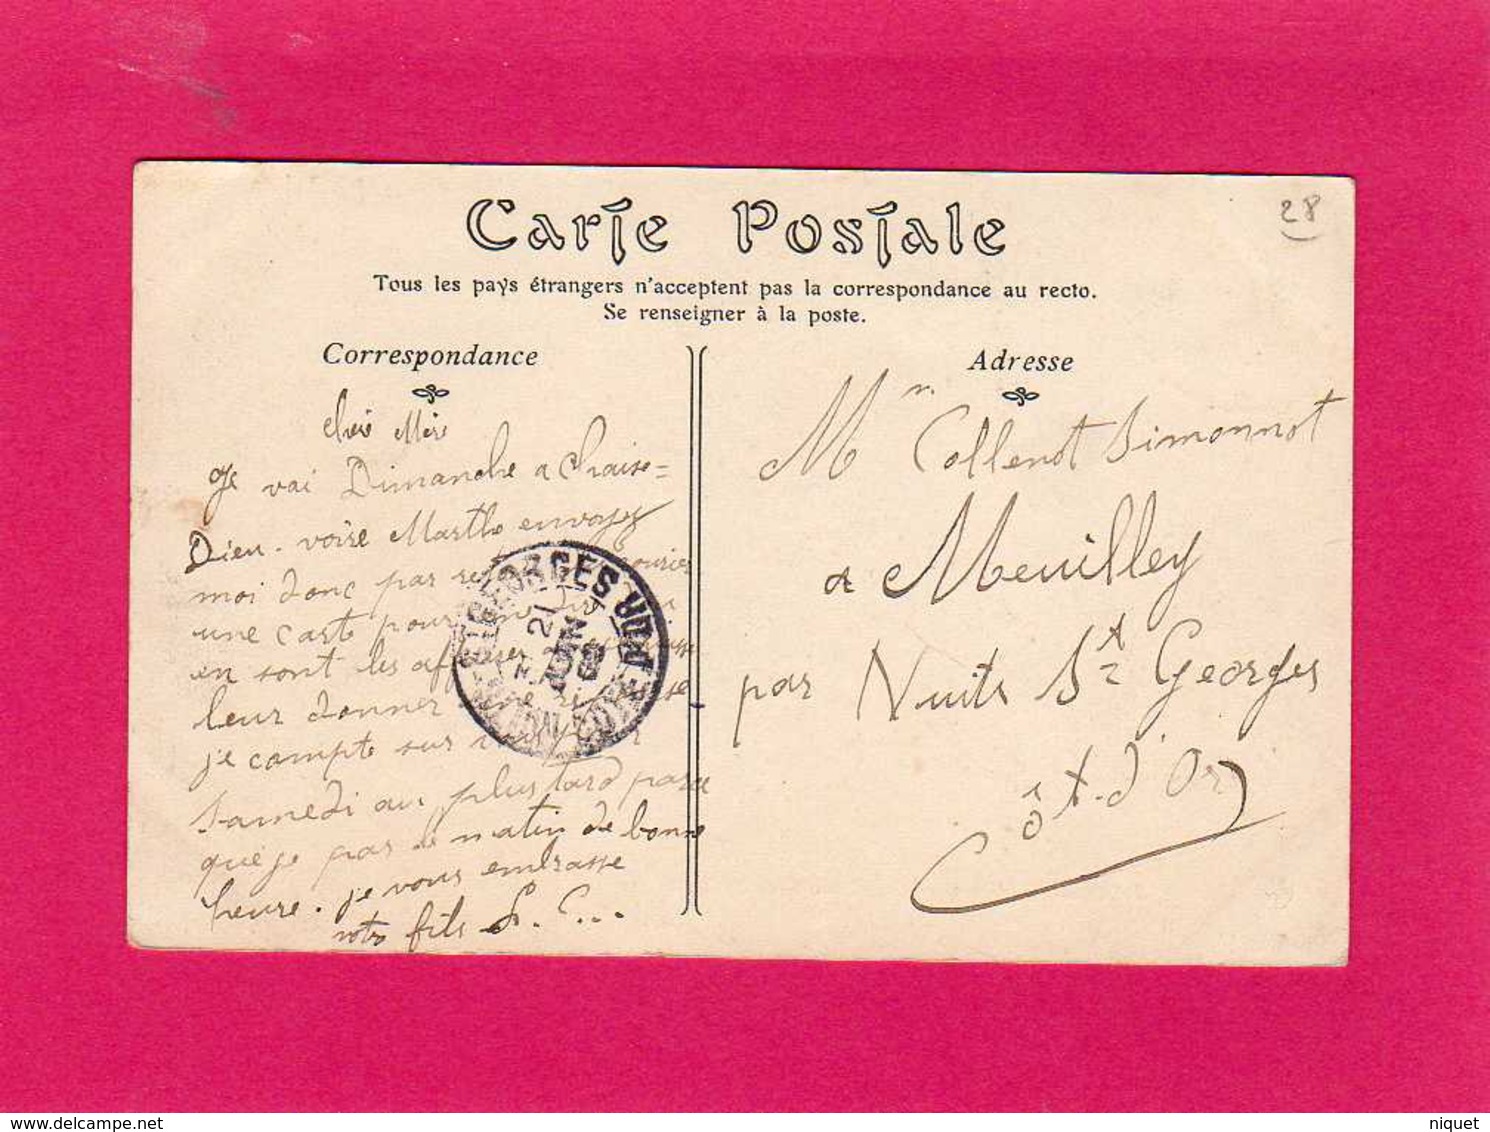 Carte Postale
28
Tous les pays étrangers n'acceptent pas la correspondance au recto.
Se renseigner à la poste.
Correspondance
chere Mere
Je vai Dimanche a Chaise=
Dieu. voire Marthe envoyez
moi donc par courier
une carte pour me dire
en sont les affaires
leur donner une reponse
je compte sur
Samedi au plus tard parce
que je pars le matin de bonne
heure. je vous embrasse
votre fils L. C...
ST GEORGES
21
JUIN
08
Adresse
Mm Collenot Simonnot
a Meuilley
par Nuits St Georges
Côte-d'Or
niquet